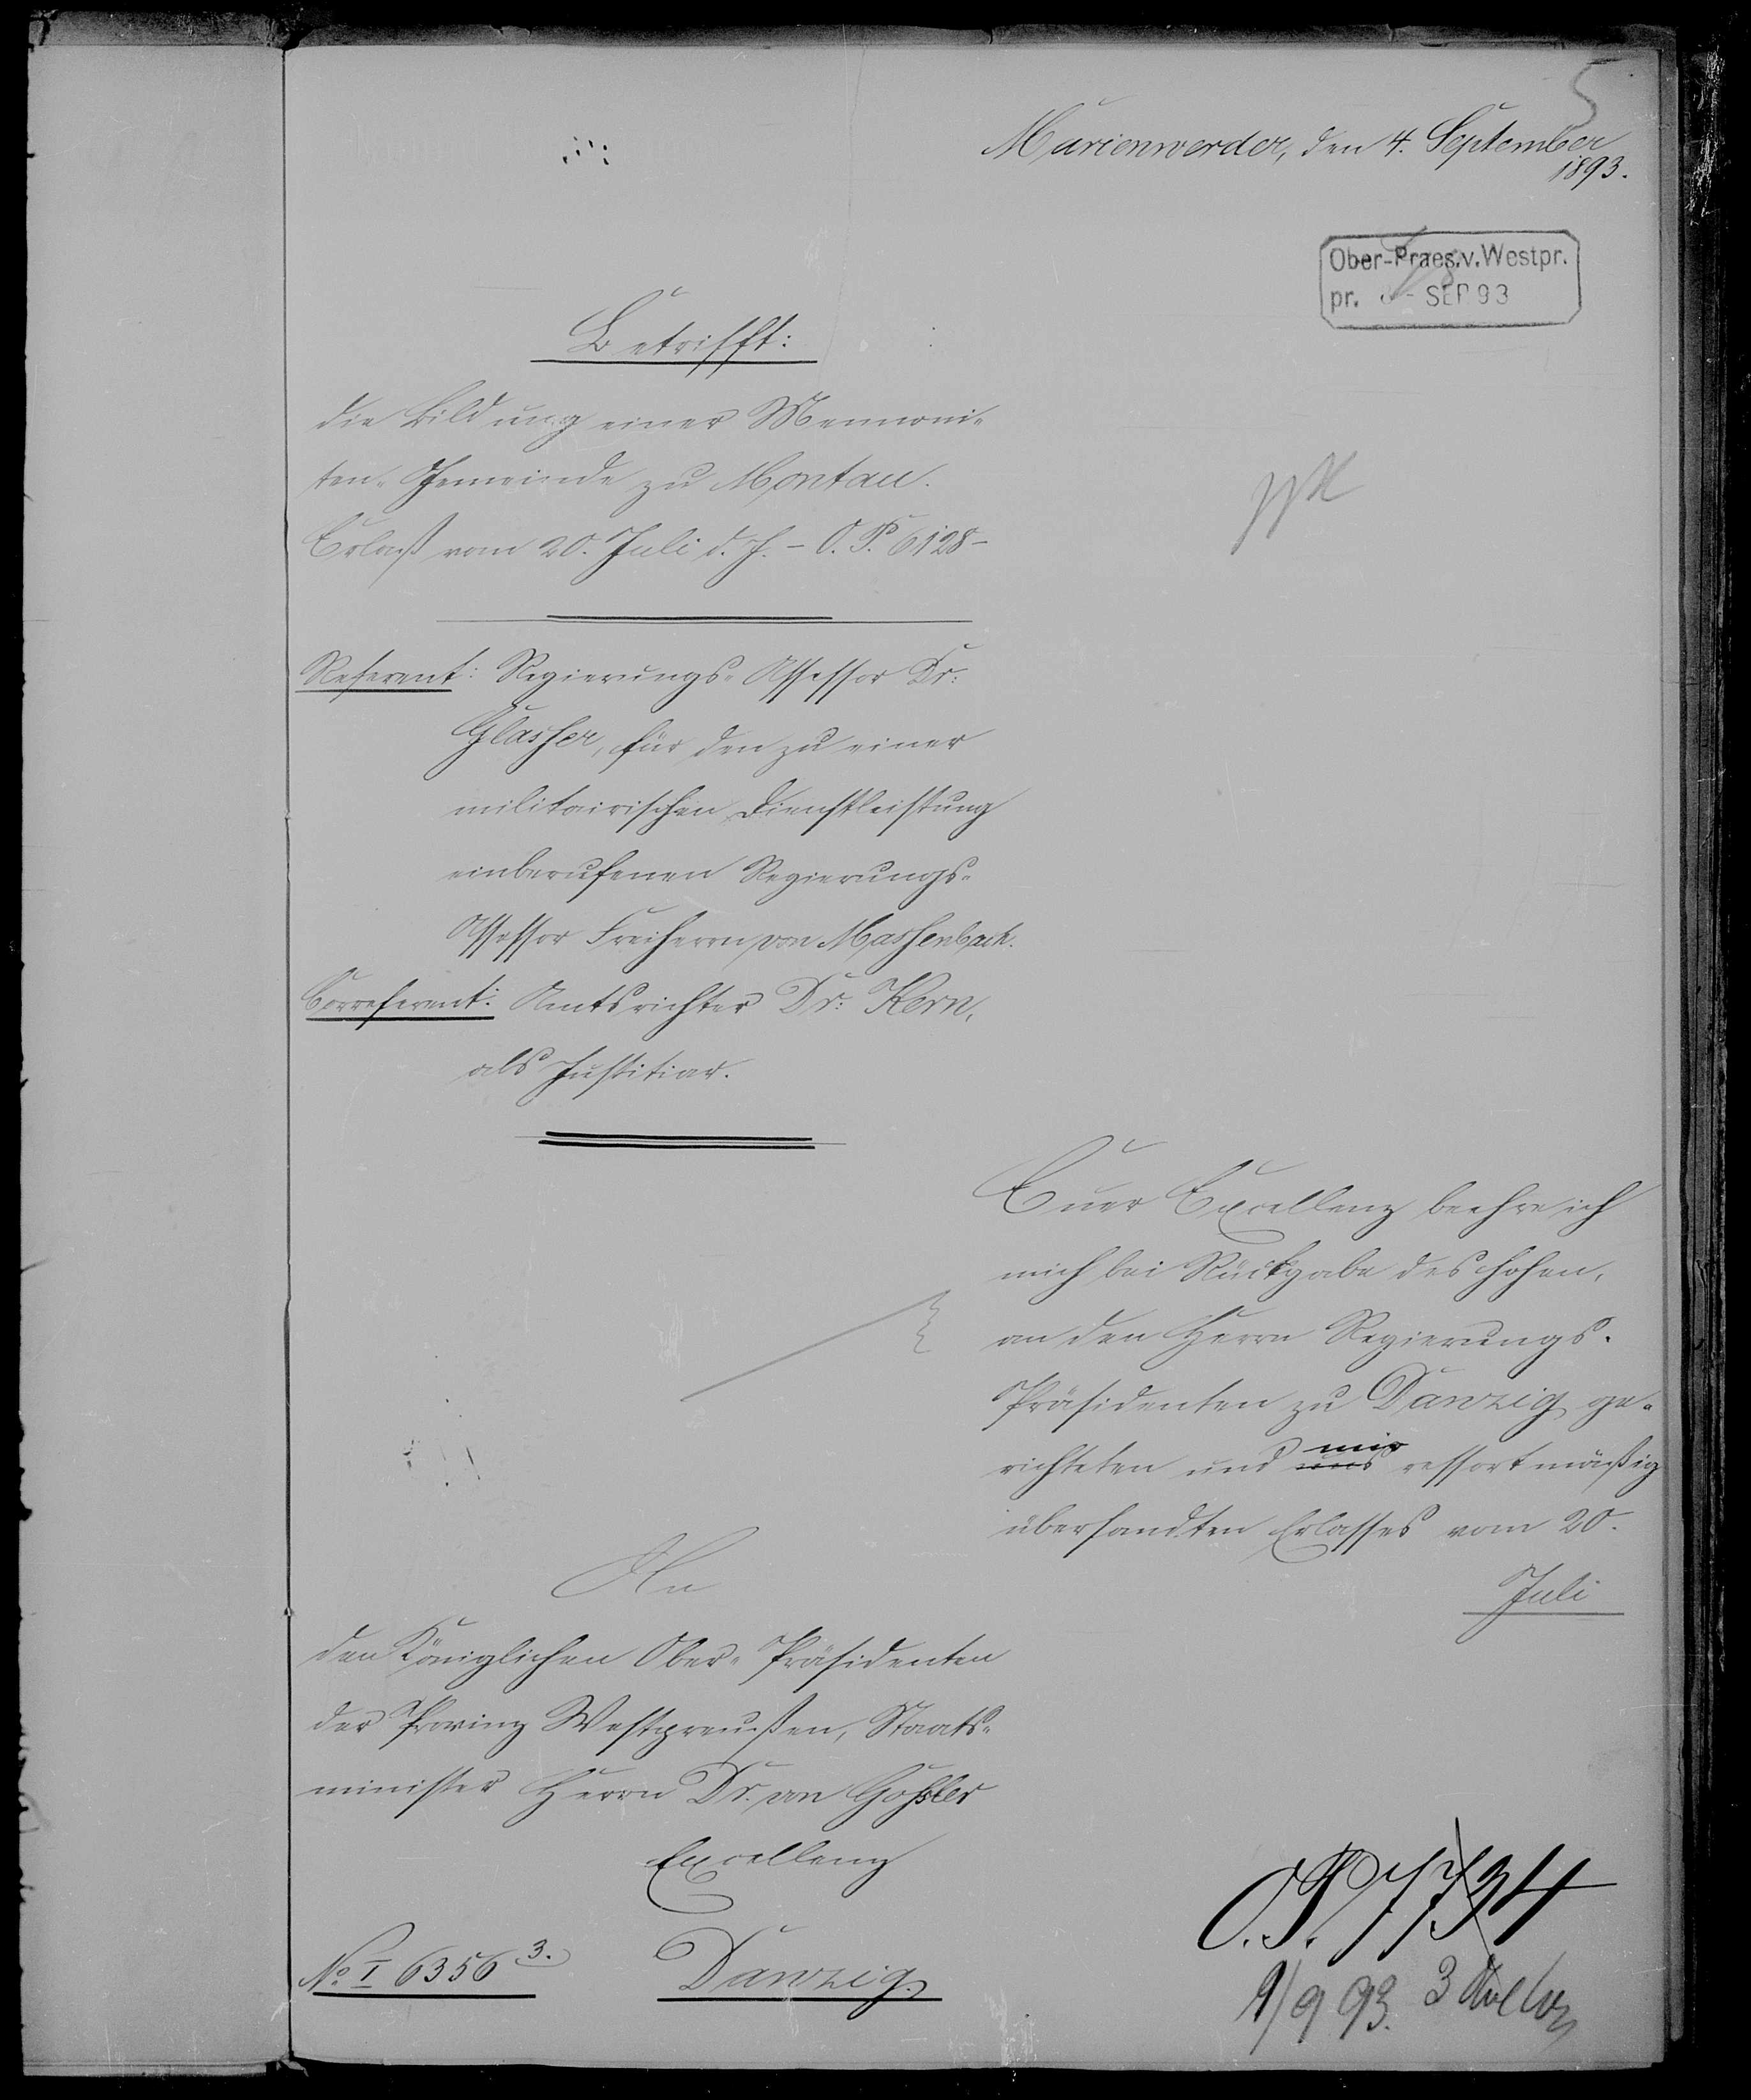 5
Marienwerder, den 4. September
1893.
Ober-Praes.v.Westpr.
pr. SEP 93
Betrifft:
die Bildung einer Mennoni-
ten-Gemeinde zu Montau.
Erlaß vom 20. Juli d. J. - O. P. 6128 -
Referent: Regierungs-Assessor Dr.
Glasser, für den zu einer
militairischen Dienstleistung
einberufenen Regierungs-
Assessor Freiherrn von Massenbach.
Correferent: Amtsrichter Dr. Kern,
als Justitiar.
Euer Excellenz beehre ich
mich bei Rückgabe des hohen,
an den Herrn Regierungs-
Präsidenten zu Danzig ge-
richteten und uns mir ressortmäßig
übersandten Erlasses vom 20.
Juli
An
den Königlichen Ober-Präsidenten
der Provinz Westpreußen, Staats-
minister Herrn Dr. von Goßler
Excellenz
No I 6356 3.
Danzig.
O.P. 7734
9/9 93. 3